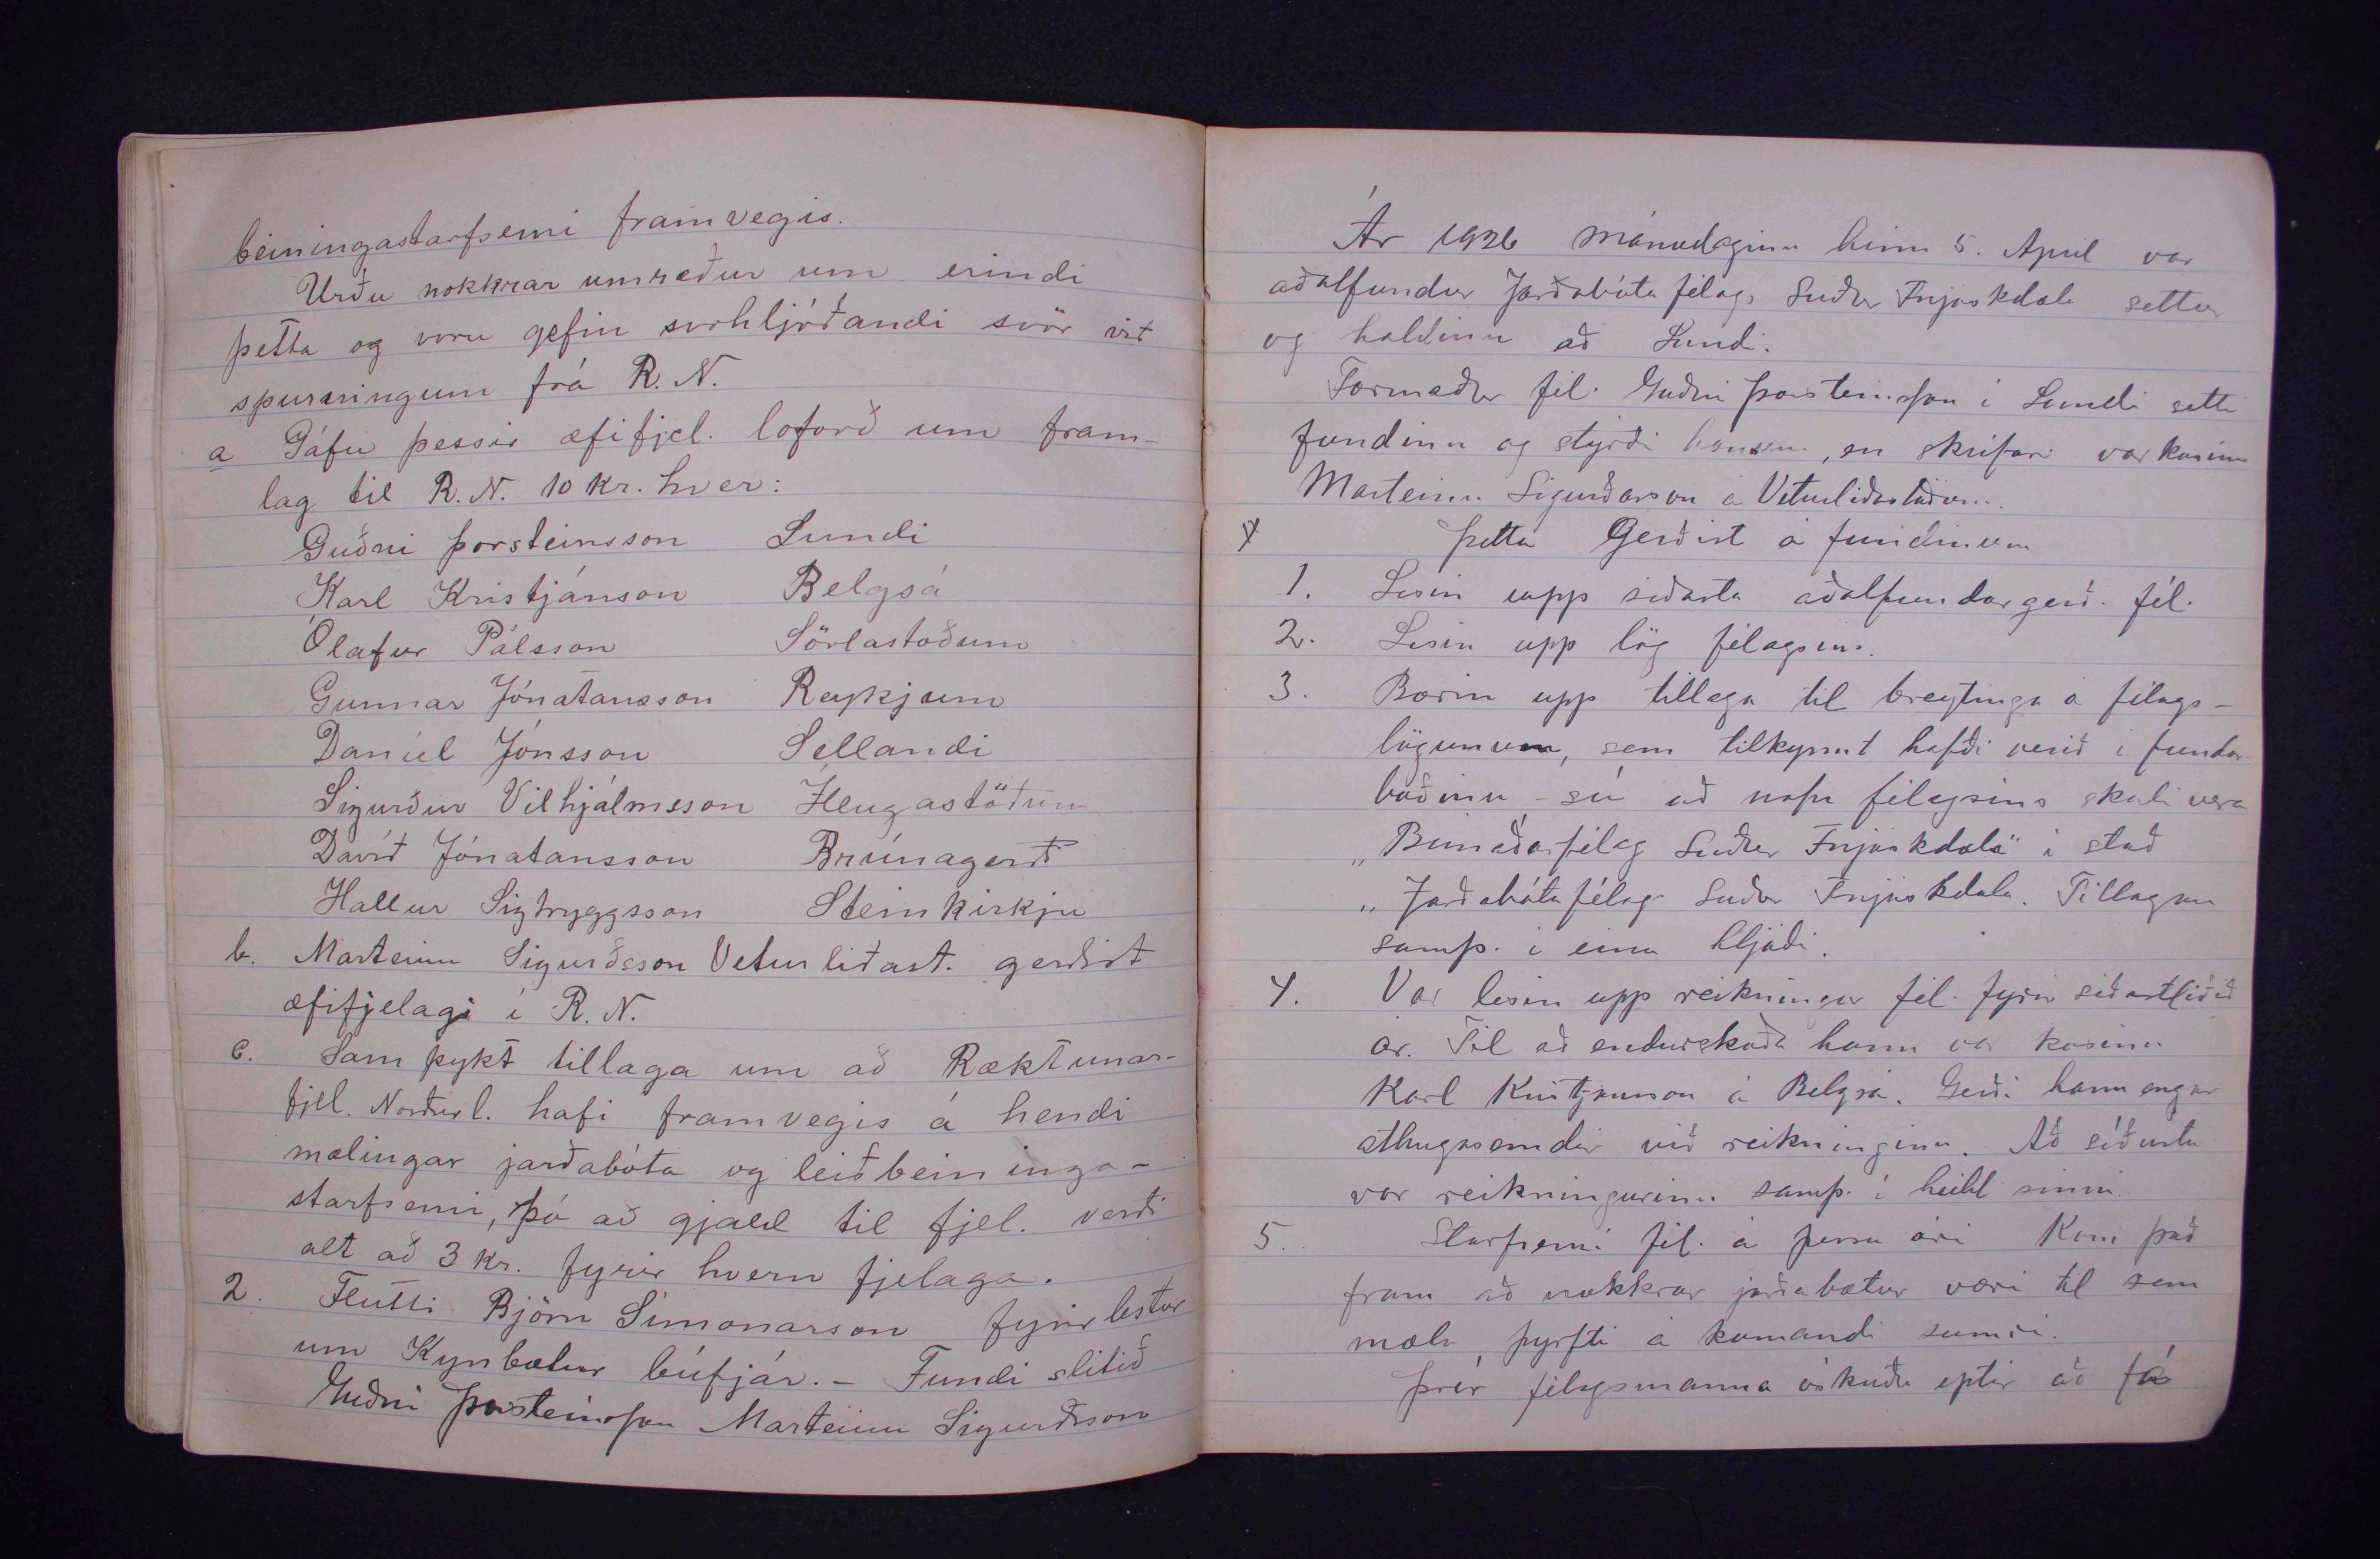 beiningastarfsemi framvegis.
Urðu nokkrar umræður um erindi
þetta og voru gefin svohljóðandi svör við
spurningum frá R. N.
a Gáfu þessir æfifjel. loforð um fram-
lag til R. N. 10 kr. hver:
Guðni Þorsteinsson Lundi
Karl Kristjánson Belgsá
Ólafur Pálsson Sörlastöðum
Gunnar Jónatansson Reykjum
Daníel Jónsson Sellandi
Sigurður Vilhjálmsson Illugastöðum
Davíð Jónatansson Brúnagerði
Hallur Sigtryggsson Steinkirkju
b. Marteinn Sigurðsson Veturliðast. gerðist
æfifjelagi í R. N.
c. Samþykt tillaga um að Ræktunar-
fjel. Norðurl. hafi framvegis á hendi
mælingar jarðabóta og leiðbeininga-
starfsemi, þó að gjald til fjel. verði
alt að 3 kr. fyrir hvern fjelaga.
2. Flutti Björn Símonarson fyrirlestur
um Kynbætur búfjár. - Fundi slitið
Guðni Þorsteinsson Marteinn Sigurðsson
Ár 1926 mánudaginn hinn 5. Apríl var
aðalfundur Jarðabótafélags Suður Fnjóskdæla settur
og haldinn að Lundi.
Formaður fél. Guðni Þorsteinsson í Lundi setti
fundinn og stýrði honum, en skrifari var kosinn
Marteinn Sigurðarson á Veturliðastöðum.
Þetta Gerðist á fundinum
1. Lesin upp síðasta aðalfundargerð. fél.
2. Lesin upp lög félagsins.
3. Borin upp tillaga til breytinga á félags-
lögunum, sem tilkynnt hafði verið í fundar
boðinu - sú að nafn félagsins skuli vera
„Búnaðarfélag Suður Fnjóskdæla" í stað
„Jarðabótafélag Suður Fnjóskdæla. Tillagan
samþ. í einu hljóði.
4. Var lesin upp reikningur fél. fyrir síðastliðið
ár. Til að endurskoða hann var kosinn
Karl Kristjánsson á Belgsá. Gerði hann engar
athugasemdir við reikninginn. Að síðustu
var reikningurinn samþ. í heild sinni.
5. Starfsemi fél. á þessu ári Kom það
fram að nokkrar jarðabætur væri til sem
mæla þyrfti á komandi sumri.
Þrír félagsmanna óskuðu eptir að fá